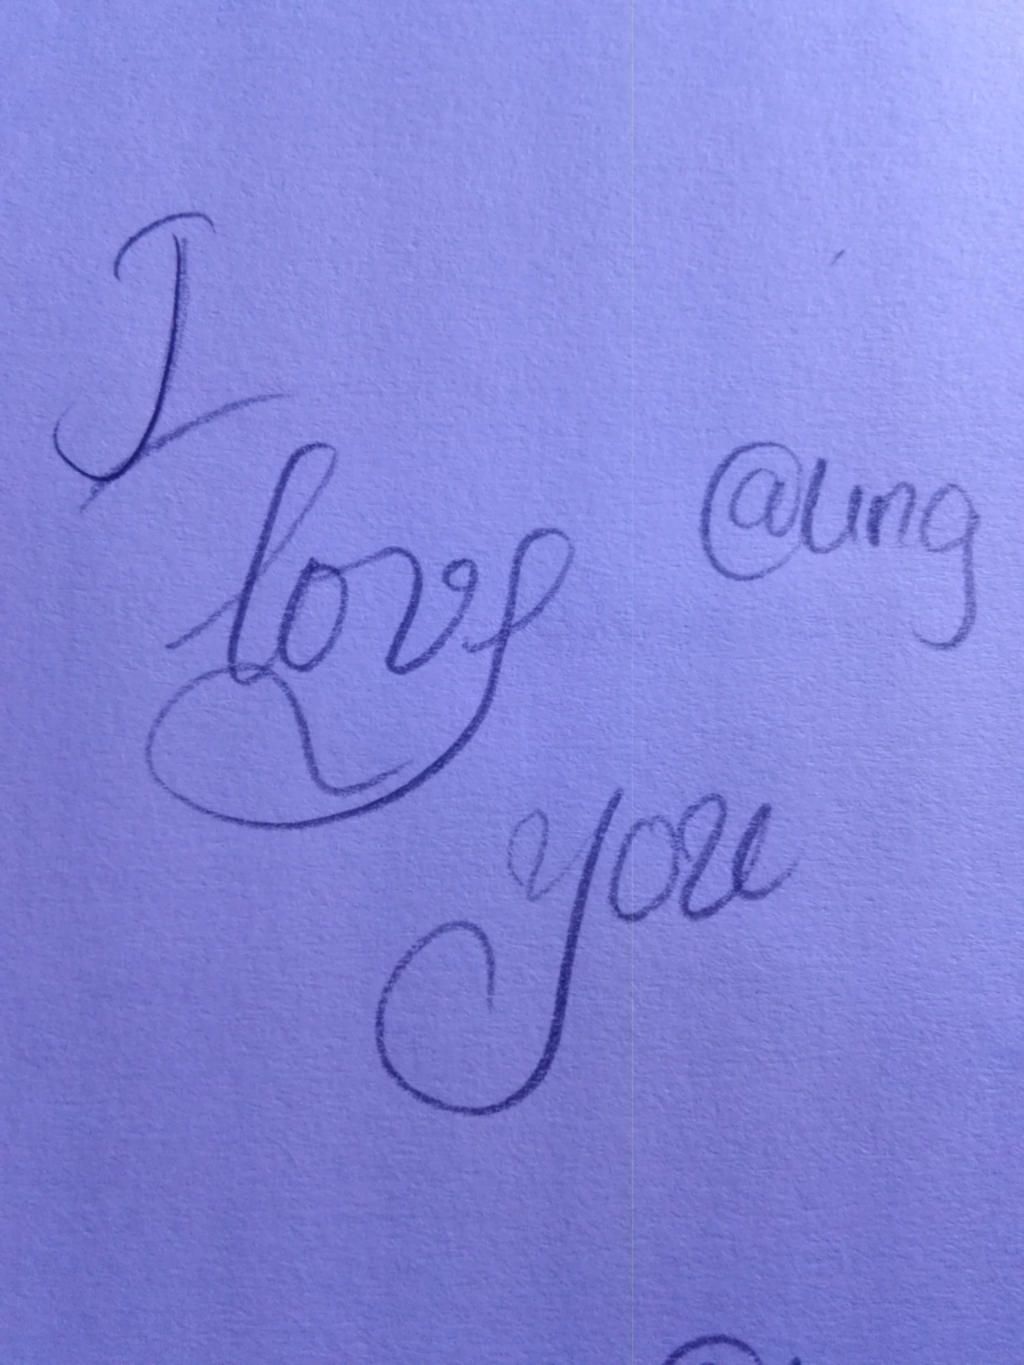 I
love
@ung
you